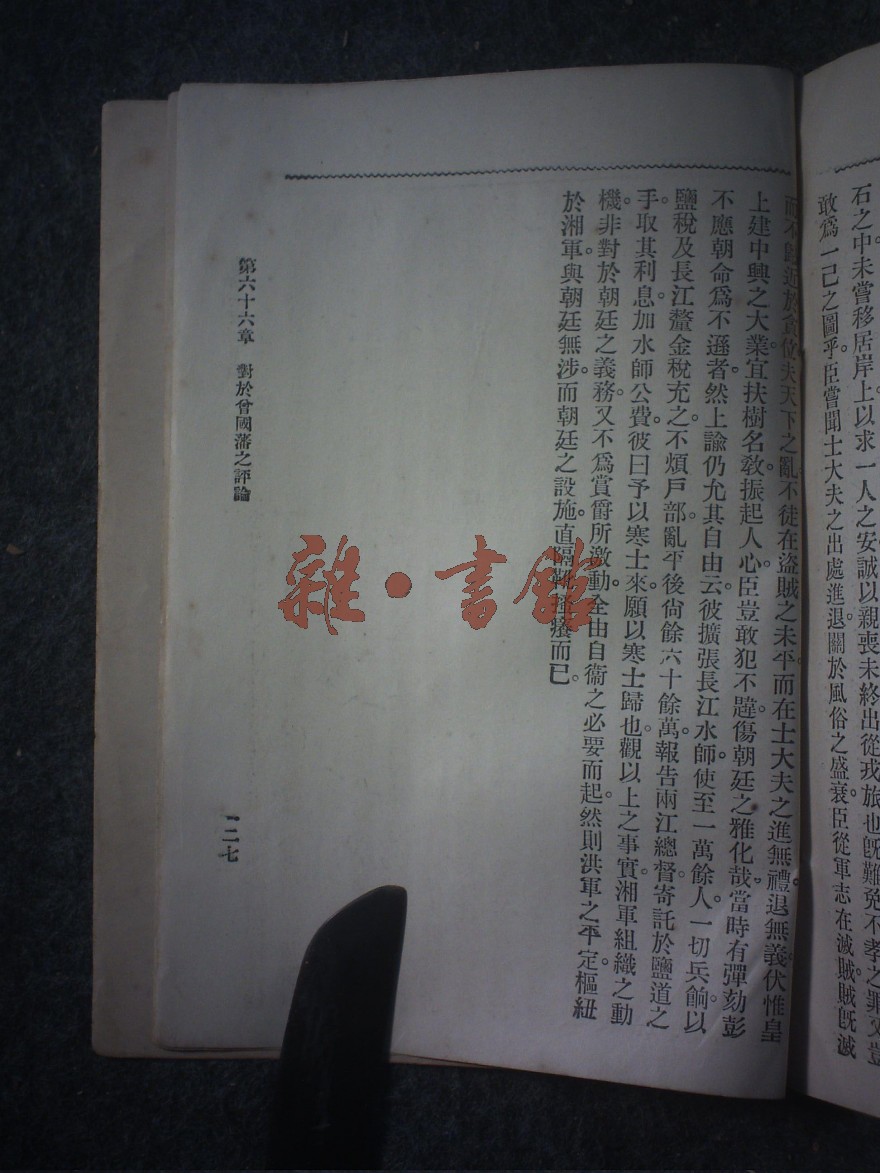 石之中未嘗移居岸上以求一人之安誠以親喪未終出從戎旅也旣難免不孝之罪又豈
敢爲一己之圖乎。臣嘗聞士大夫之出處進退。關於風俗之盛衰。臣從軍志在滅賊。賊旣滅
而不歸近於貪位夫天下之亂。不徒在盜賊之未平。而在士大夫之進無禮。退無義。伏惟皇
上建中興之大業。宜扶樹名敎。振起人心。臣豈敢犯不韙。傷朝廷之雅化哉。當時有彈劾彭
不應朝命爲不遜者。然上諭仍尤其自由云。彼擴張長江水師。使至一萬餘人。一切兵餉。以
鹽稅及長江釐金稅充之。不煩戶部。亂平後尙餘六十餘萬。報告兩江總督。寄託於鹽道之
手。取其利息。加水師公費。彼曰予以寒士來。願以寒士歸也。觀以上之事實。湘軍組織之動
機。非對於朝廷之義務。又不爲賞爵所激動。全由自衞之必要而起。然則洪軍之平定。樞紐
於湘軍。與朝廷無涉。而朝廷之設施。直隔靴搔癢而已。
第六十六章 對於曾國藩之評論
一二七
雜·書館